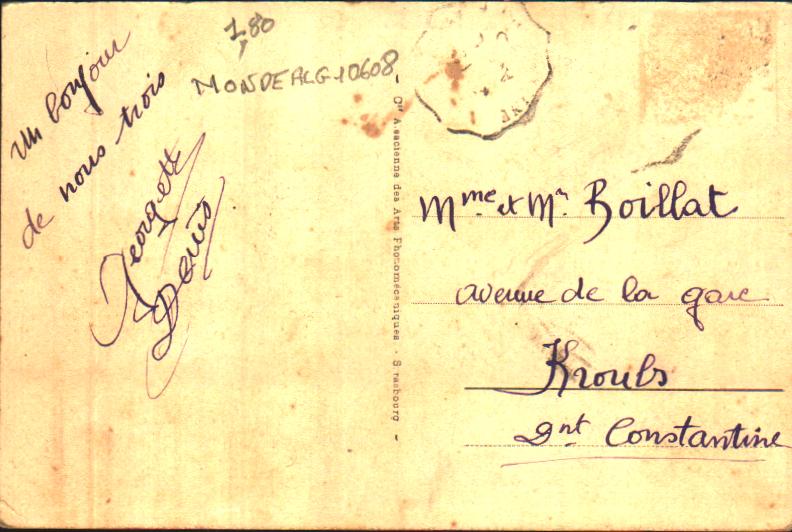 1,80
MONDEALG10608
Un bonjour
de nous trois
Georgette
Denis
Cie Alsacienne des Arts Photomécaniques - Strasbourg -
Mme et Mr Boillat
avenue de la gare
Kroubs
Dnt Constantine